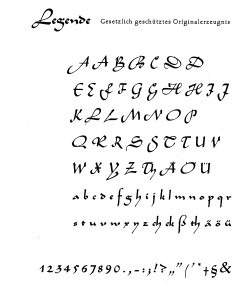 Legende Gesetzlich geschütztes Originalerzeugnis
A A B B C D D
E E F G G H H I J
K L L M N O P
Q R R S S T T U V
W X Y Z Th Ä Ö Ü
a b c d e f g h i j k l m n o p q r
s t u v w x y z ch ck ß th ä ö ü
1 2 3 4 5 6 7 8 9 0 . , - : ; ! ? „ " ( ' * † § &